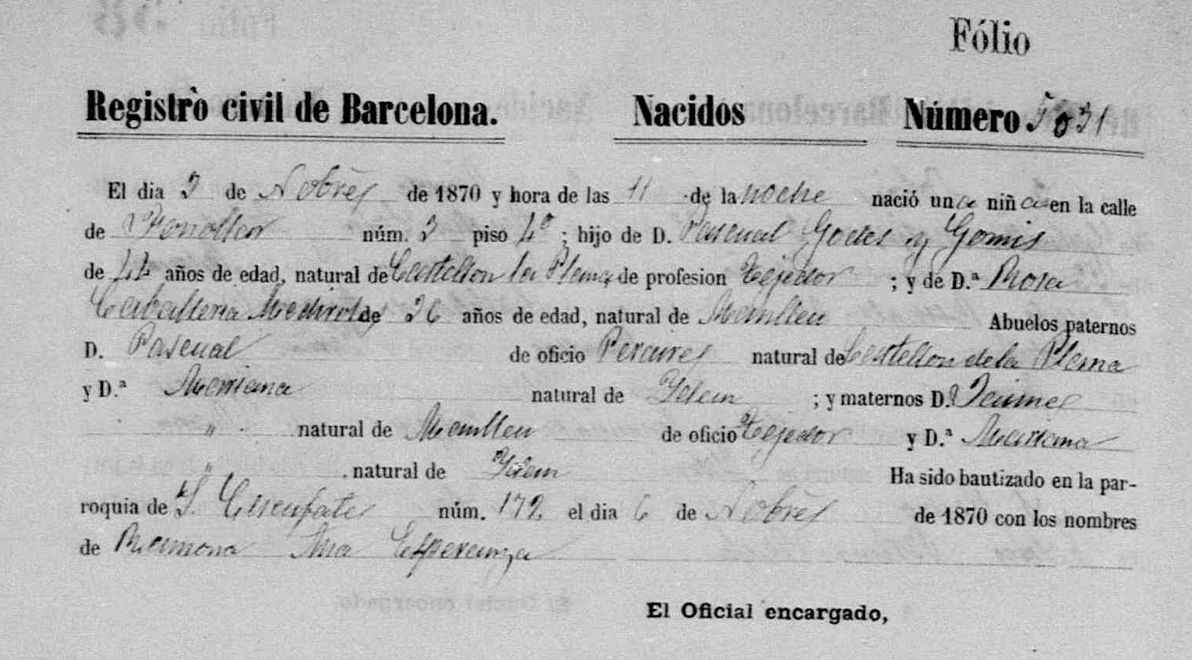 Fólio
Registro civil de Barcelona. Nacidos Número 5831
El dia 3 de Nobre de 1870 y hora de las 11 de la noche nació una niña en la calle
de núm. 3 piso 4º ; hijo de D. Pascual Godes y Gomis
de 44 años de edad, natural de Castellon la Plana de profesion Tejedor ; y de D.ª Rosa
Caballeria de 36 años de edad, natural de Manlleu Abuelos paternos
D. Pascual de oficio Peraire natural de Castellon de la Plana
y D.ª Mariana natural de Idem ; y maternos D. Jaime
" natural de Manlleu de oficio Tejedor y D.ª Mariana
" natural de Idem Ha sido bautizado en la par-
roquia de S. Cucufate núm. 172 el dia 6 de Nobre de 1870 con los nombres
de Ramona Ana Esperanza
El Oficial encargado,